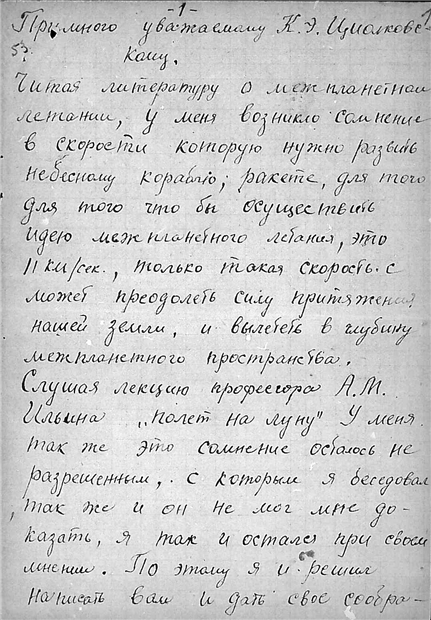 -1-
1
Премного уважаемому К.Э. Циолковс-
53.
кому.
Читая литературу о межпланетном
летании, у меня возникло сомнение
в скорости которую нужно развить
небесному кораблю; ракете, для того
для того что бы осуществить
идею межпланетного летания, это
11 км/сек., только такая скорость. с
может преодолеть силу притяжения
нашей земли, и вылететь в глубину
межпланетного пространства.
Слушая лекцию профессора А.М.
Ильина „полет на луну" У меня
так же это сомнение осталось не
разрешенным, с которым я беседовал
, так же и он не мог мне до-
казать, я так и остался при своем
мнении. По этому я и решил
написать вам и дать свое сообра-